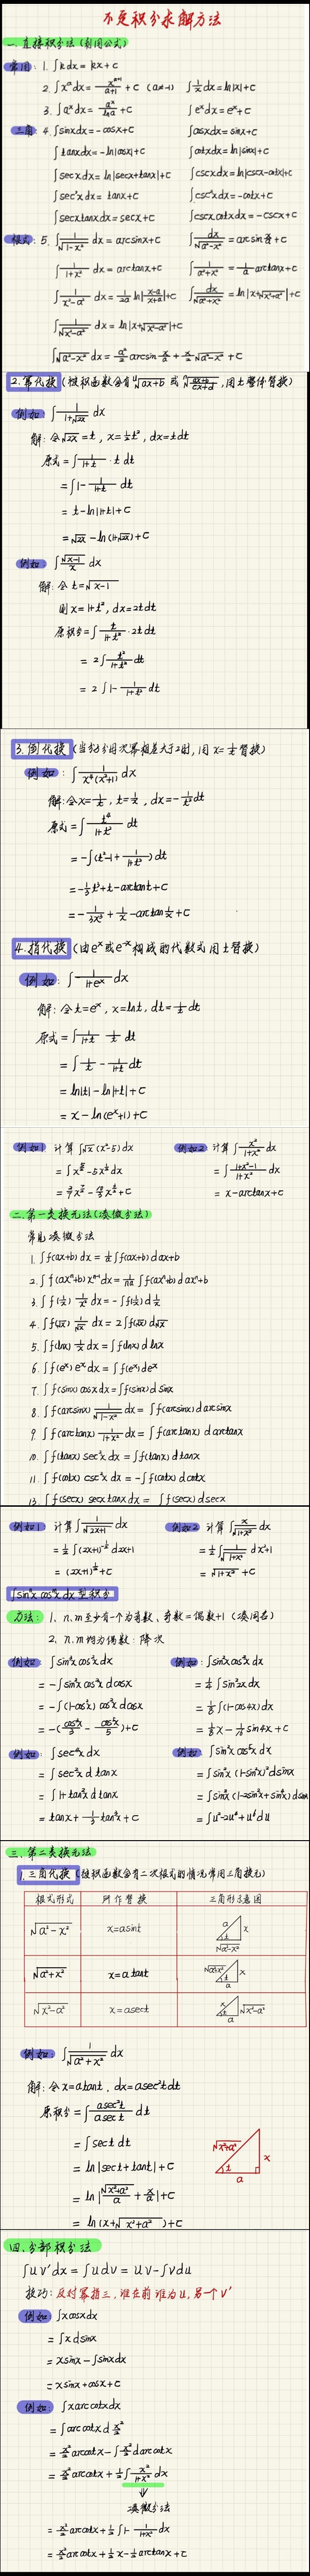 不定积分求解方法
一. 直接积分法 (利用公式)
常用: 1. ∫k dx = kx + C
2. ∫x^a dx = x^(a+1)/(a+1) + C (a≠-1) ∫1/x dx = ln|x| + C
3. ∫a^x dx = a^x/lna + C ∫e^x dx = e^x + C
三角: 4. ∫sinx dx = -cosx + C ∫cosx dx = sinx + C
∫tanx dx = -ln|cosx| + C ∫cotx dx = ln|sinx| + C
∫secx dx = ln|secx+tanx| + C ∫cscx dx = ln|cscx-cotx| + C
∫sec²x dx = tanx + C ∫csc²x dx = -cotx + C
∫secxtanx dx = secx + C ∫cscx cotx dx = -cscx + C
根式: 5. ∫1/√(1-x²) dx = arcsinx + C ∫dx/√(a²-x²) = arcsin x/a + C
∫1/(1+x²) dx = arctanx + C
∫1/(x²-a²) dx = 1/2a ln|(x-a)/(x+a)| + C
∫1/√(x²-a²) dx = ln|x+√(x²-a²)| + C
∫√(a²-x²) dx = a²/2 arcsin x/a + x/2 √(a²-x²) + C
2. 幂代换 (被积函数含有 ⁿ√(ax+b) 或 ⁿ√((ax+b)/(cx+d)), 用t整体替换)
例如 ∫1/(1+√2x) dx
解: 令√2x = t, x = ½t², dx = t dt
原式 = ∫1/(1+t) · t dt
= ∫1 - 1/(1+t) dt
= t - ln|1+t| + C
= √2x - ln(1+√2x) + C
例如 ∫√(x-1)/x dx
解: 令 t = √(x-1)
则 x = 1+t², dx = 2t dt
原积分 = ∫t/(1+t²) · 2t dt
= 2∫t²/(1+t²) dt
= 2∫1 - 1/(1+t²) dt
3. 倒代换 (当分子分母次幂相差大于2时, 用 x = 1/t 替换)
例如: ∫1/(x⁴(x²+1)) dx
解: 令 x = 1/t, t = 1/x, dx = -1/t² dt
原式 = ∫t⁴/(1+t²) dt
= -∫(t²-1+1/(1+t²)) dt
= -⅓t³ + t - arctant + C
= -1/3x³ + 1/x - arctan 1/x + C
4. 指代换 (由e^x或e^-x构成的代数式用t替换)
例如: ∫1/(1+e^x) dx
解: 令 t = e^x, x = lnt, dt = 1/t dt
原式 = ∫1/(1+t) 1/t dt
= ∫1/t - 1/(1+t) dt
= ln|t| - ln|1+t| + C
= x - ln(e^x+1) + C
例如1 计算 ∫√x (x²-5) dx 例如2 计算 ∫x²/(1+x²) dx
= ∫(1+x²-1)/(1+x²) dx
= x - arctanx + C
二. 第一类换元法 (凑微分法)
常见凑微分法
1. ∫f(ax+b) dx = 1/a ∫f(ax+b) d ax+b
2. ∫f(ax^n+b) x^(n-1) dx = 1/na ∫f(ax^n+b) d ax^n+b
3. ∫f(1/x) 1/x² dx = -∫f(1/x) d 1/x
4. ∫f(√x) 1/√x dx = 2∫f(√x) d√x
5. ∫f(lnx) 1/x dx = ∫f(lnx) d lnx
6. ∫f(e^x) e^x dx = ∫f(e^x) de^x
7. ∫f(sinx) cosx dx = ∫f(sinx) d sinx
8. ∫f(arcsinx) 1/√(1-x²) dx = ∫f(arcsinx) d arcsinx
9. ∫f(arctanx) 1/(1+x²) dx = ∫f(arctanx) d arctanx
10. ∫f(tanx) sec²x dx = ∫f(tanx) d tanx
11. ∫f(cotx) csc²x dx = -∫f(cotx) d cotx
13. ∫f(secx) secx tanx dx = ∫f(secx) d secx
例如1 计算 ∫1/√(2x+1) dx 例如2 计算 ∫x/√(1+x²) dx
= ½∫(2x+1)^(-½) d 2x+1 = ½∫1/√(1+x²) dx²+1
= (2x+1)^½ + C = √(1+x²) + C
∫sinⁿx cosᵐx dx 型积分
方法: 1. n, m至少有一个为奇数, 奇数=偶数+1 (凑同名)
2. n. m均为偶数: 降次
例如: ∫sin³x cos²x dx 例如: ∫sin²x cos²x dx
= -∫sin²x cos²x d cosx = ¼∫sin²2x dx
= -∫(1-cos²x) cos²x d cosx = ⅛∫(1-cos4x) dx
= -(cos³x/3 - cos⁵x/5) + C
例如: ∫sec⁴x dx 例如: ∫sin²x cos⁵x dx
= ∫sec²x d tanx = ∫sin²x (1-sin²x)² d sinx
= ∫1+tan²x d tanx = ∫sin²x (1-2sin²x+sin⁴x) d sinx
= tanx + ⅓tan³x + C
三. 第二类换元法
1. 三角代换 (被积函数含有二次根式的情况常用三角换元)
根式形式 所作替换 三角形示意图
√(a²-x²) x = asint a x t √(a²-x²)
√(a²+x²) x = a tant √(a²+x²) x t a
√(x²-a²) x = asect x √(x²-a²) t a
例如: ∫1/√(a²+x²) dx
解: 令 x = atant, dx = asec²t dt
原积分 = ∫asec²t/asect dt
= ∫sect dt
= ln|sect+tant| + C
= ln|√(x²+a²)/a + x/a| + C
= ln(x+√(x²+a²)) + C
√(x²+a²) x t a
四. 分部积分法
∫uv'dx = ∫u dv = uv - ∫v du
技巧: 反对幂指三, 谁在前谁为u, 另一个v'
例如: ∫xcosx dx
= ∫x dsinx
= xsinx - ∫sinx dx
= xsinx + cosx + C
例如: ∫xarccotx dx
= ∫arccotx d x²/2
= x²/2 arccotx - ∫x²/2 d arccotx
= x²/2 arccotx + ½∫x²/(1+x²) dx
⇓
凑微分法
= x²/2 arccotx + ½∫1 - 1/(1+x²) dx
= x²/2 arccotx + ½x - ½arctanx + C